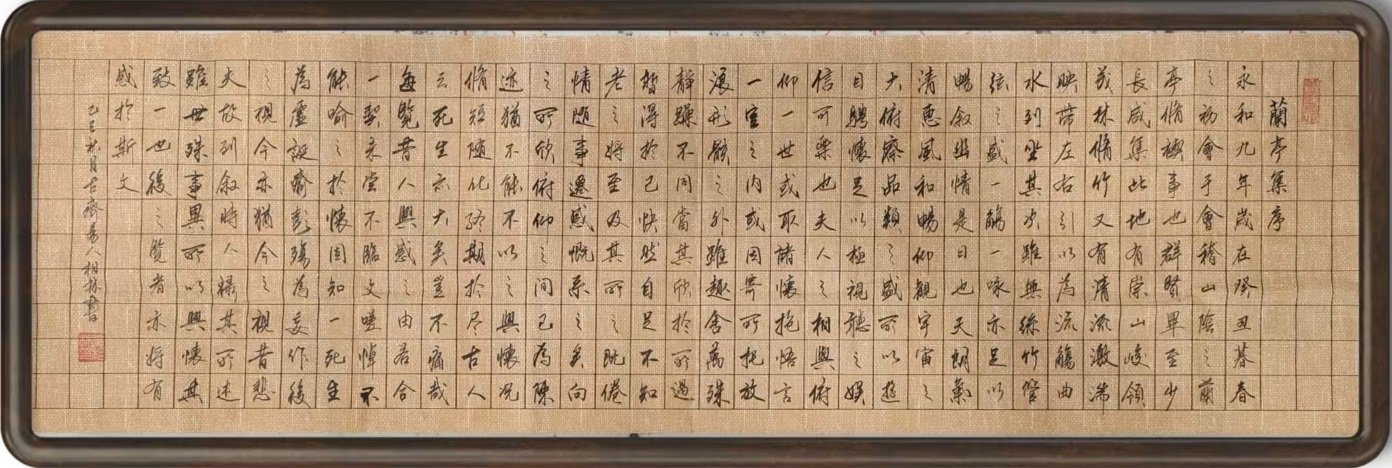 蘭亭集序
永和九年歲在癸丑暮春
之初會于會稽山陰之蘭
亭脩禊事也群賢畢至少
長咸集此地有崇山峻領
茂林脩竹又有清流激湍
映帶左右引以為流觴曲
水列坐其次雖無絲竹管
弦之盛一觴一詠亦足以
暢敘幽情是日也天朗氣
清惠風和暢仰觀宇宙之
大俯察品類之盛所以遊
目騁懷足以極視聽之娛
信可樂也夫人之相與俯
仰一世或取諸懷抱悟言
一室之內或因寄所托放
浪形骸之外雖趣舍萬殊
靜躁不同當其欣於所遇
暫得於己快然自足不知
老之將至及其所之既倦
情隨事遷感慨系之矣向
之所欣俯仰之間已為陳
迹猶不能不以之興懷況
脩短隨化終期於盡古人
云死生亦大矣豈不痛哉
每覽昔人興感之由若合
一契未嘗不臨文嗟悼不
能喻之於懷固知一死生
為虛誕齊彭殤為妄作後
之視今亦猶今之視昔悲
夫故列敘時人錄其所述
雖世殊事異所以興懷其
致一也後之覽者亦將有
感於斯文
乙巳秋月古齊人相林書